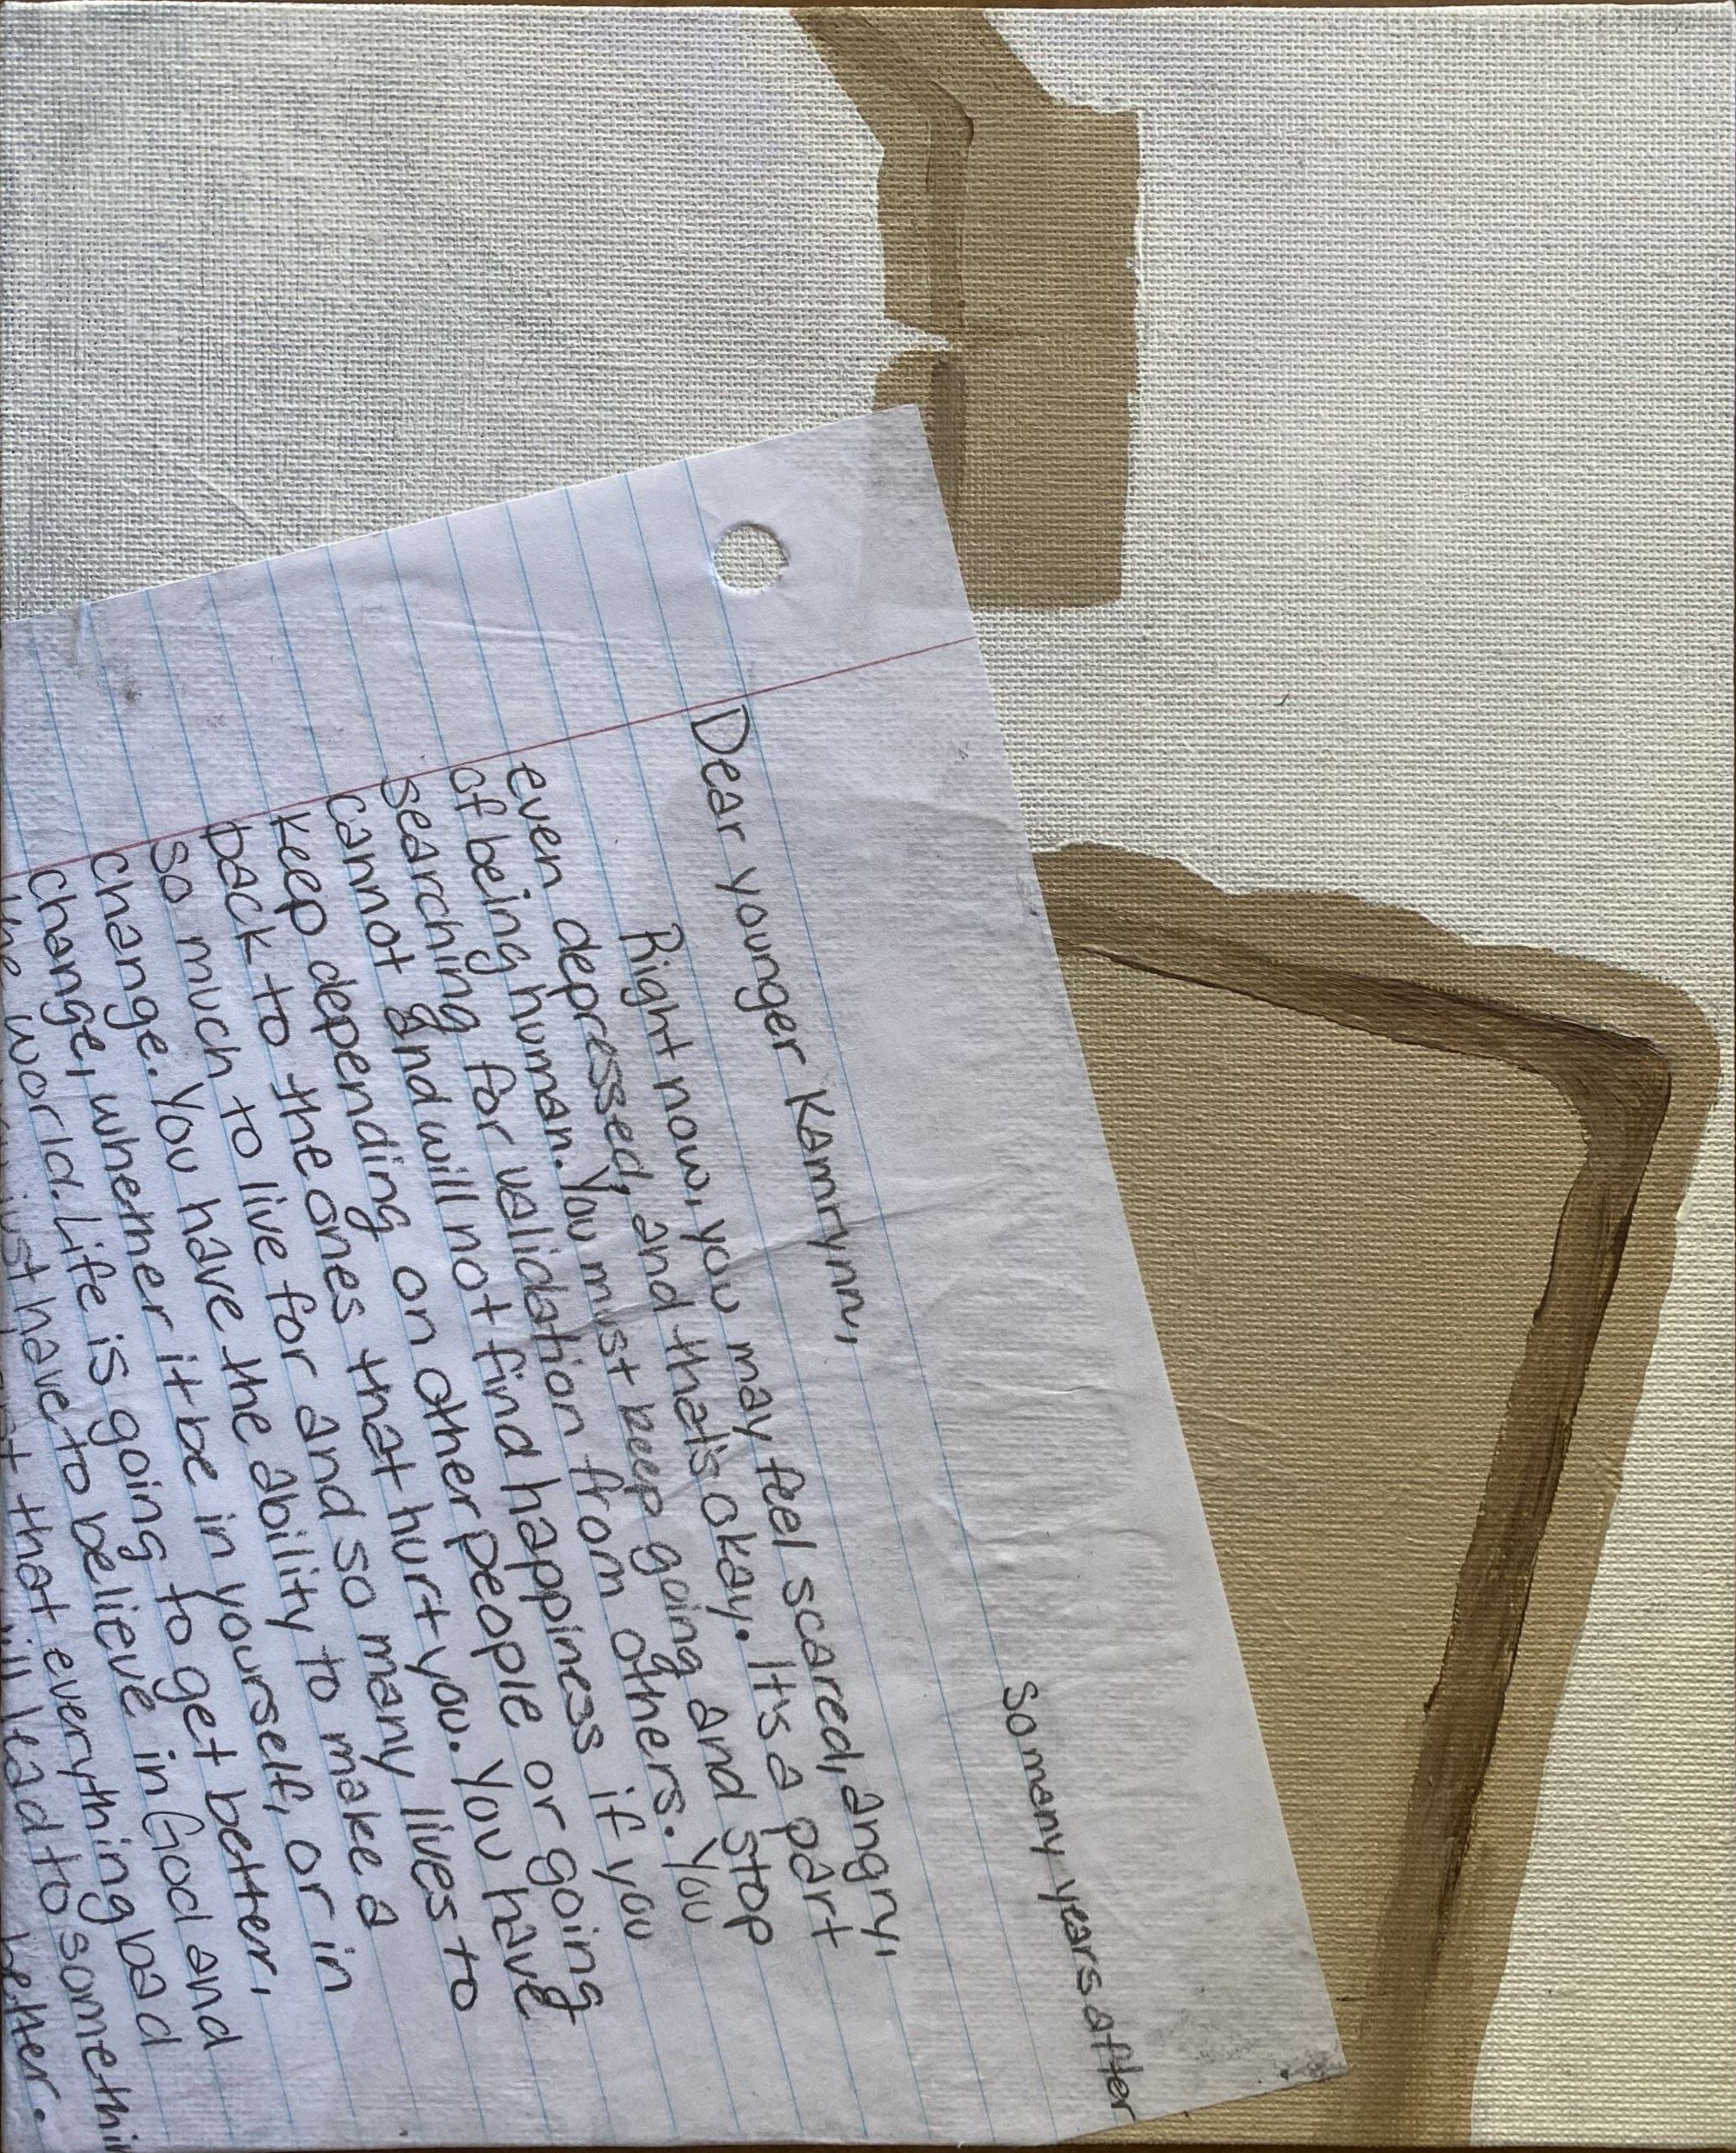 So many years after
Dear younger Kamrynn,
Right now, you may feel scared, angry,
even depressed, and that's okay. Its a part
of being human. You must keep going and stop
searching for validation from others. You
cannot and will not find happiness if you
keep depending on other people or going
back to the ones that hurt you. You have
so much to live for and so many lives to
change. You have the ability to make a
change, whether it be in yourself, or in
the world. Life is going to get better,
just have to believe in God and
that everything bad
will lead to somethin
better.